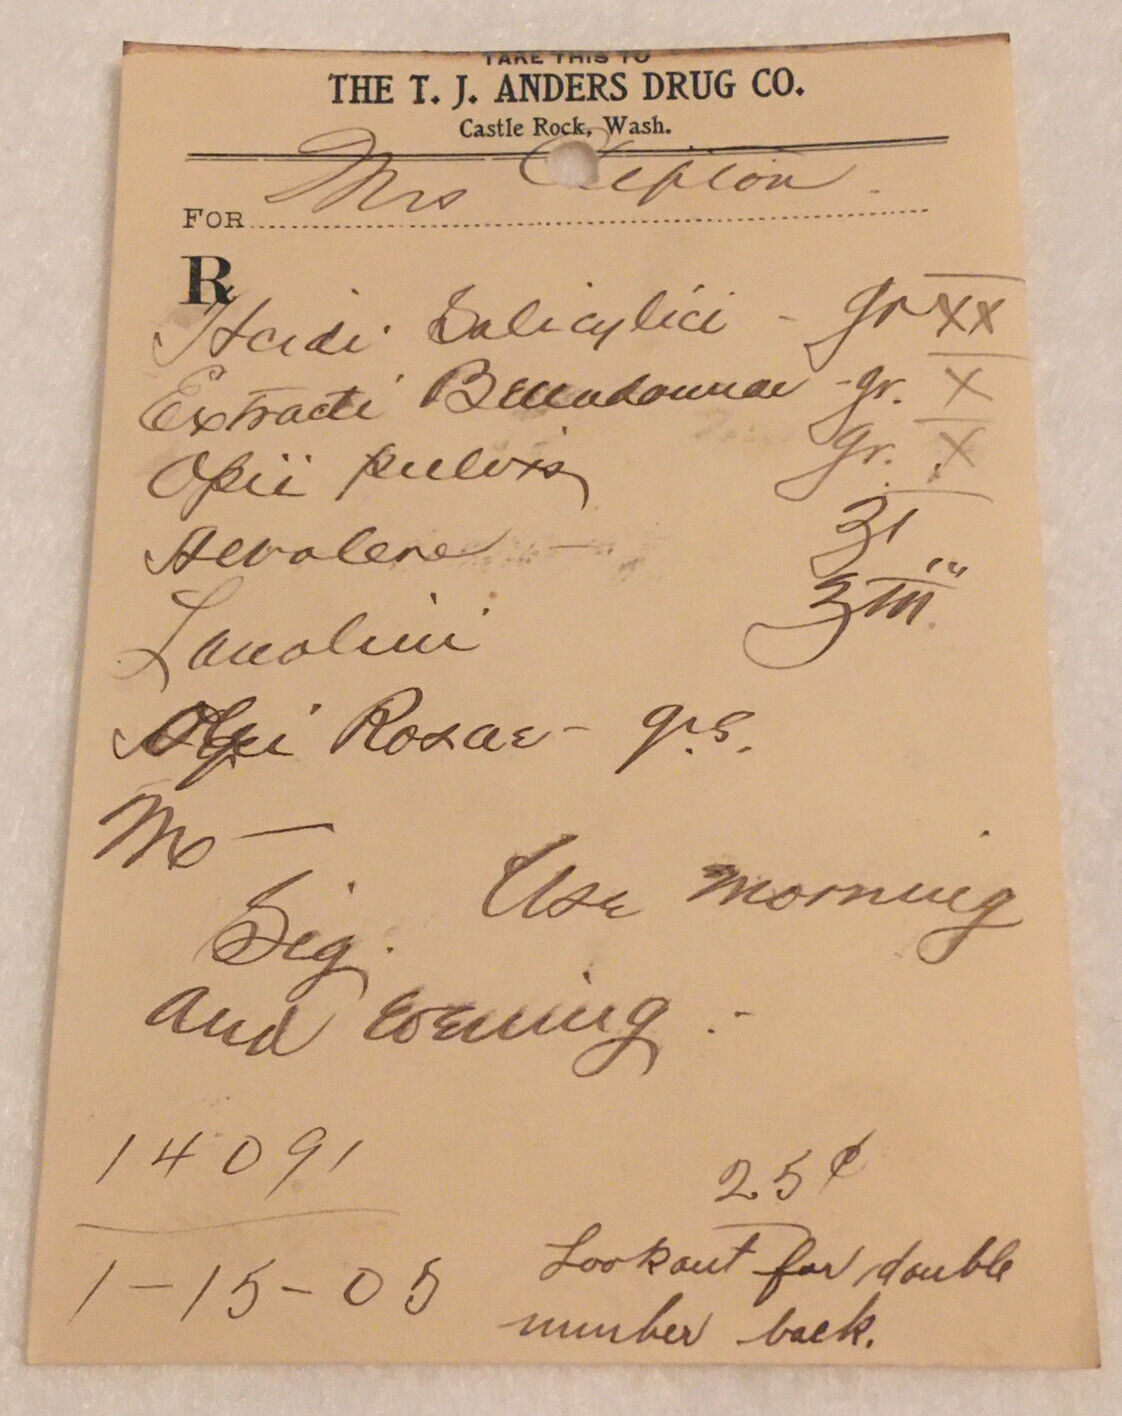 TAKE THIS TO
THE T. J. ANDERS DRUG CO.
Castle Rock, Wash.
FOR Mrs
R
Acidi Salicylici - gr XX
Extracti Belladonnae - gr. X
Opii pulvis gr. X
Albolene — ʒi
Lanolini ʒiii
Aqui Rosae - q.s.
M —
Sig. Use morning
and evening .-
14091
25¢
1-15-05
Lookout for double
number back.